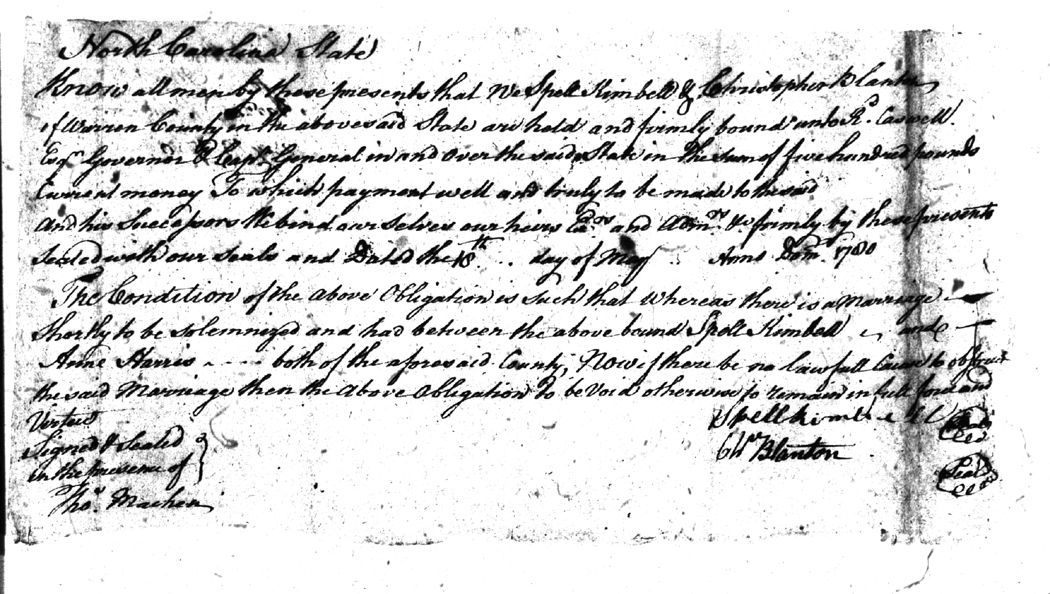 North Carolina State
Know all men by these presents that We Spell Kimbell & Christopher Blanton
of Warren County in the abovesaid State are held and firmly bound unto Rd. Caswell.
Esqr Governor & Capt. General in and over the said State in the sum of five hundred pounds
Current money To which payment well and truly to be made to the said
and his Successors We bind our selves our heirs Exors and Admrs &c firmly by these presents
Sealed with our Seals and Dated the 18th .. day of May .. Anno Dom. 1780
The Condition of the above Obligation is Such that Whereas there is a Marriage
Shortly to be Solemnized and had between the above bound Spell Kimbell and
Anne Harris - - - - both of the aforesaid County, Now if there be no lawfull Cause to obstruct
the said Marriage then the above Obligation to be Void otherwise to remain in full force and
Vertue
Spell Kimbell
Signed & Sealed
in the presence of
Chr Blanton
Seal
Seal
Thos. Machen